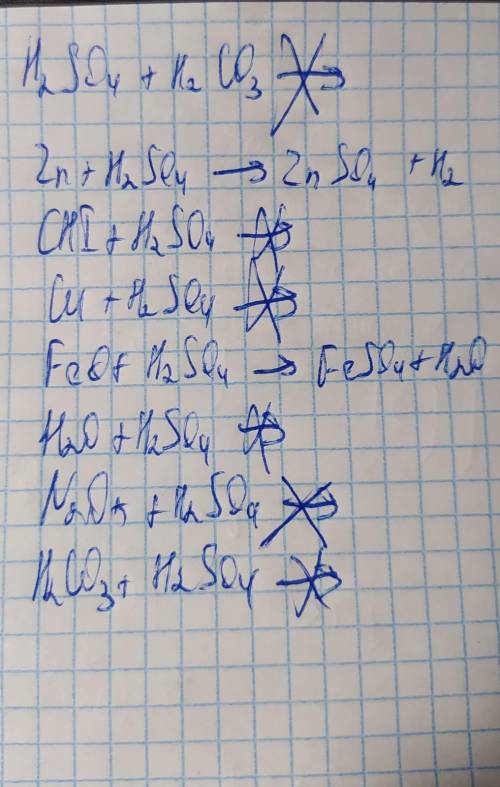 H₂SO₄ + H₂CO₃ ↛
Zn + H₂SO₄ → ZnSO₄ + H₂
+ H₂SO₄ ↛
Cu + H₂SO₄ ↛
FeO + H₂SO₄ → FeSO₄ + H₂O
H₂O + H₂SO₄ ↛
N₂O₅ + H₂SO₄ ↛
H₂CO₃ + H₂SO₄ ↛